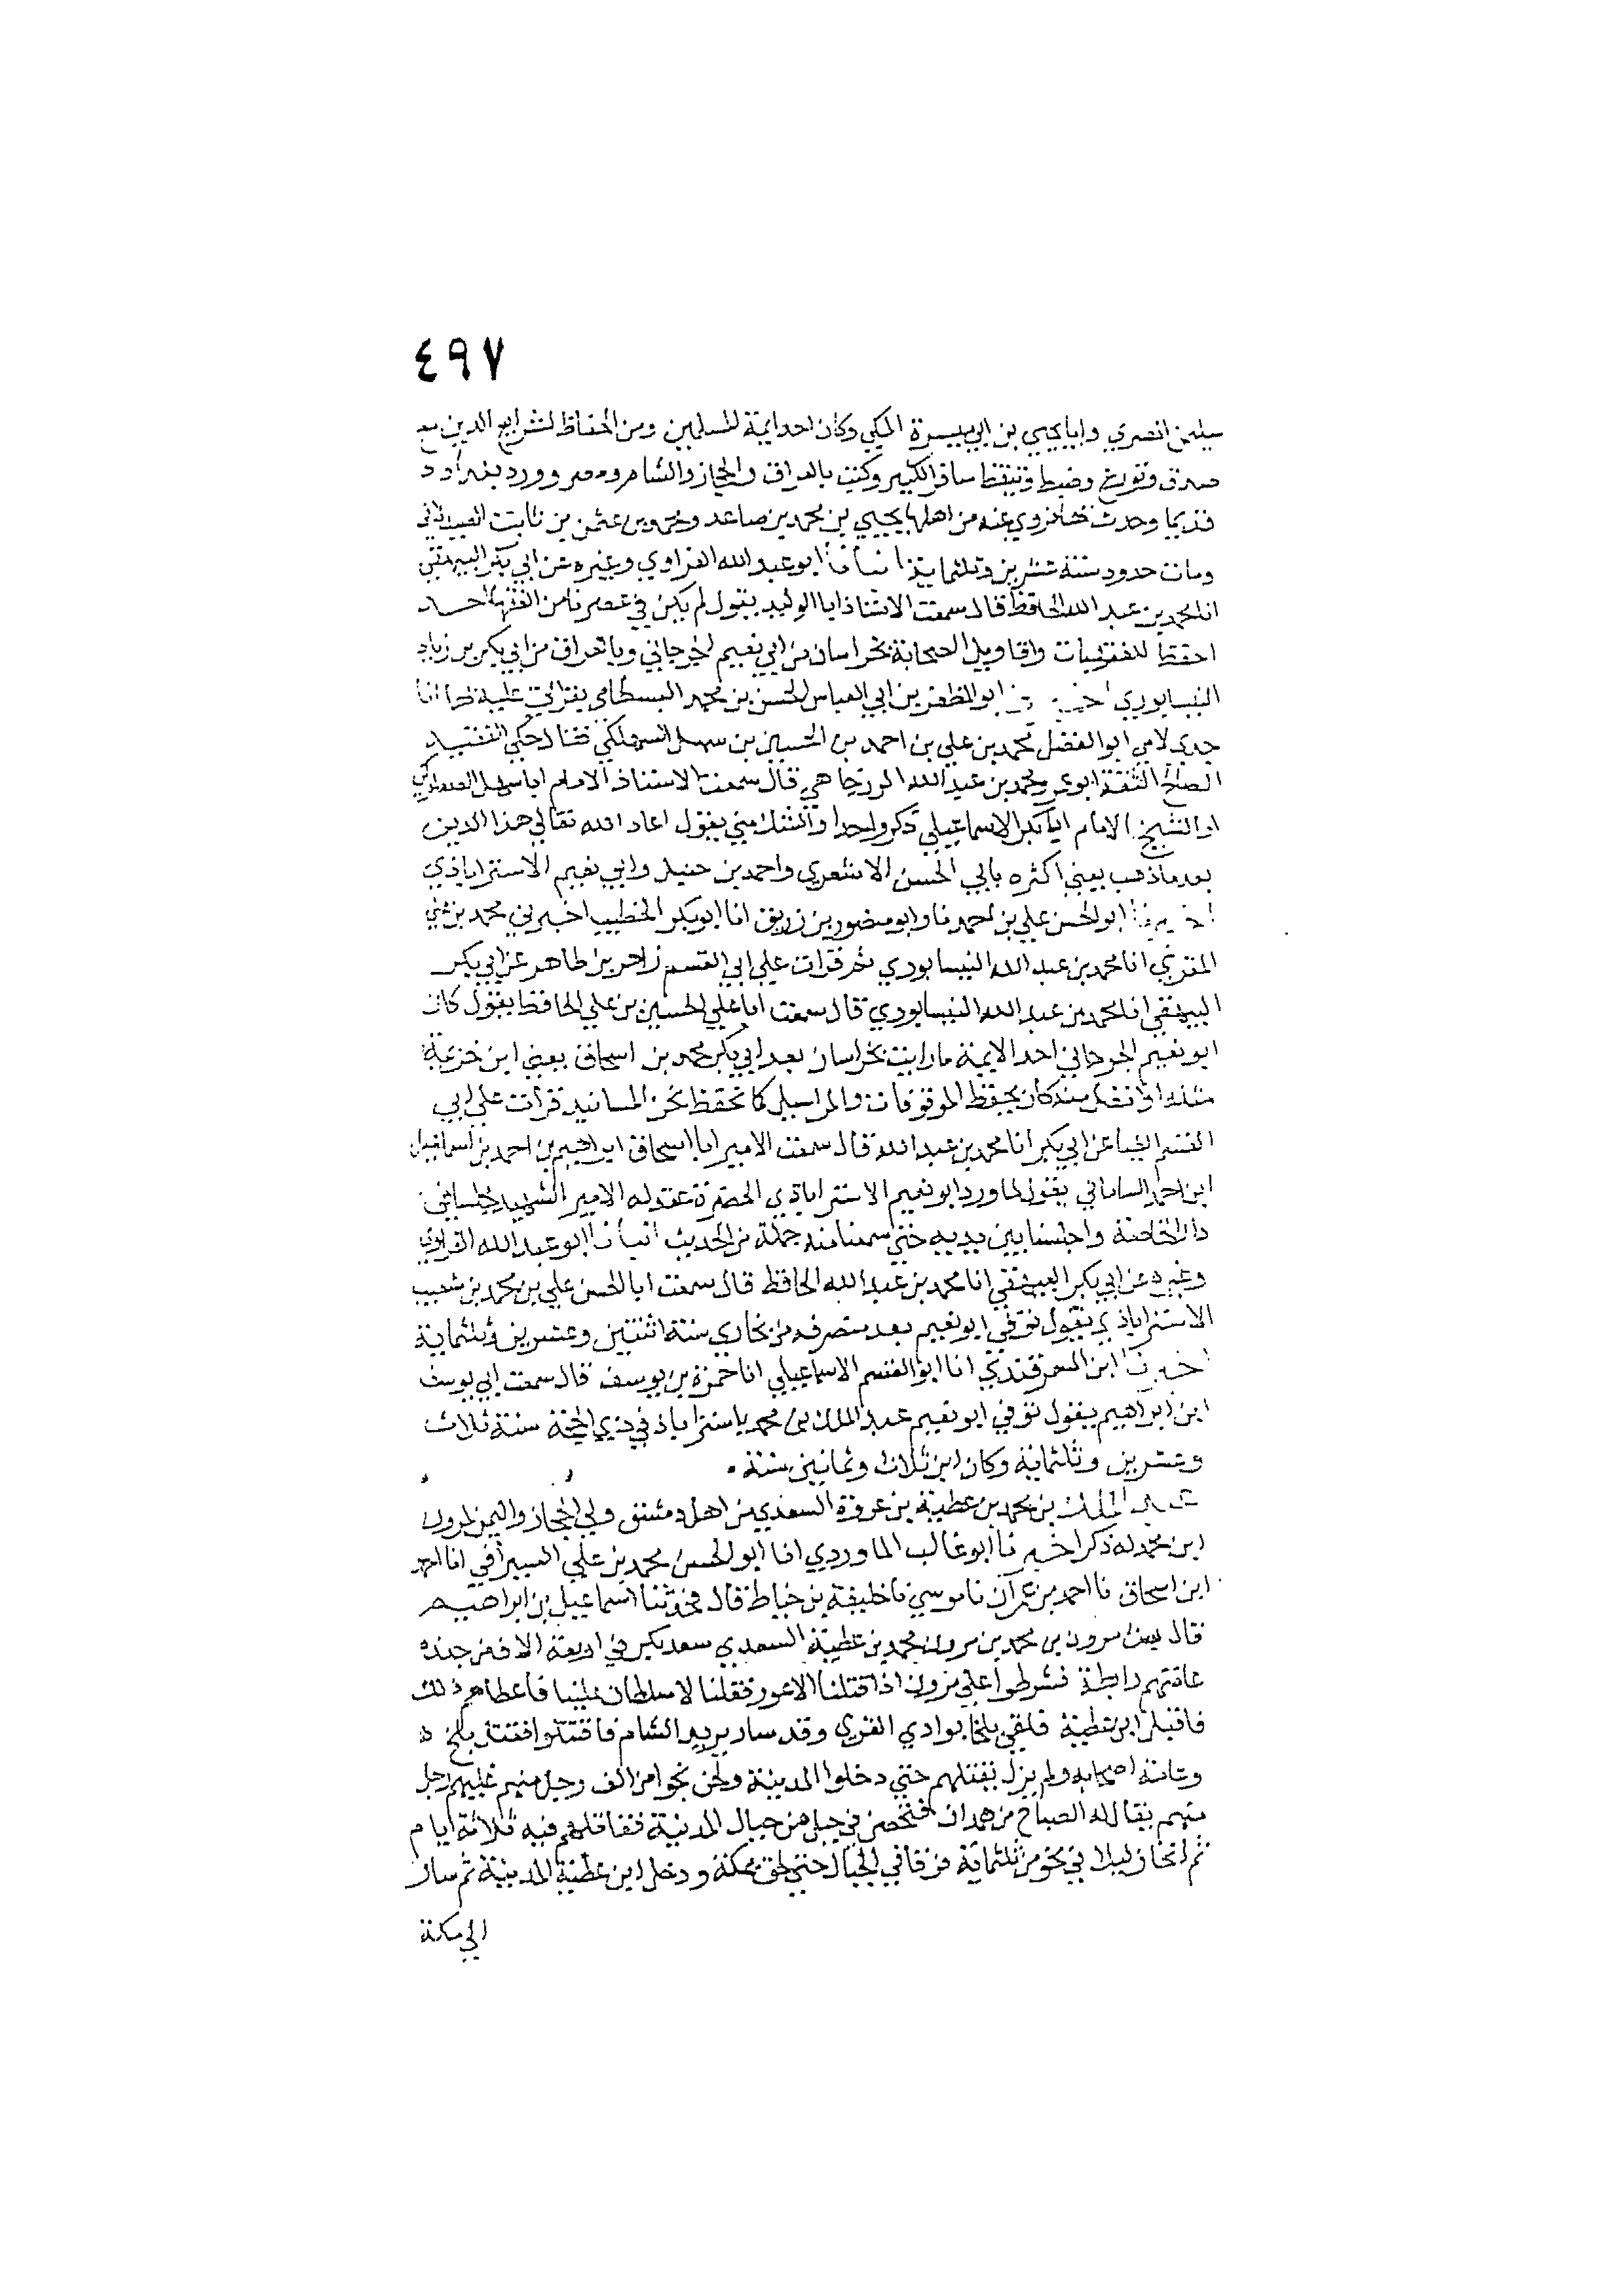 ٤٩٧
سليمن المصري وابا يحيي بن ابي ميسرة المكي وكان احد ايمة المسلمين ومن الحفاظ لشرايع الدين مع
صدق وتورع وضبط وتيقظ سافر الكثير وكتب بالعراق والحجاز والشام ومصر وورد بغداد
قديما وحدث بها فروي عنه من اهلها يحيي بن محمد بن صاعد ومحمد بن عثمن بن ثابت الصيدلاني
ومات حدود سنة عشرين وثلثماية انبأنا ابو عبد الله الفراوي وغيره عن ابي بكر البيهقي
انا محمد بن عبد الله الحافظ قال سمعت الاستاذ ابا الوليد يقول لم يكن في عصرنا من الفقها احد
احفظ للفقهيات واقاويل الصحابة بخراسان من ابي نعيم الجرجاني وبالعراق من ابي بكر بن زياد
النيسابوري اخبرنا ابو المظفر بن ابي العباس الحسن بن محمد البسطامي بقراتي عليه انا
جدي لامي ابو الفضل محمد بن علي بن احمد بن الحسين بن سهل السهلكي قال حكي الفقيه
الصالح الثقة ابو عمرو محمد بن عبد الله الرزجاهي قال سمعت الاستاذ الامام ابا سهل الصعلوكي
او الشيخ الامام ابا بكر الاسماعيلي ذكر واحدا والشك مني يقول اعاد الله تعالي هذا الدين
بعد ما ذهب يعني اكثره بابي الحسن الاشعري واحمد بن حنبل وابي نعيم الاستراباذي
اخبرنا ابو الحسن علي بن احمد نا وابو منصور بن زريق انا ابو بكر الخطيب اخبرني محمد بن علي
المقري انا محمد بن عبد الله النيسابوري ثم قرات علي ابي القسم زاهر بن طاهر عن ابي بكر
البيهقي انا محمد بن عبد الله النيسابوري قال سمعت ابا علي الحسين بن علي الحافظ يقول كان
ابو نعيم الجرجاني احد الايمة ما رايت بخراسان بعد ابي بكر محمد بن اسحاق يعني ابن خزيمة
مثله او افضل منه كان يحفظ الموقوفات والمراسيل كما نحفظ نحن المسانيد قرات علي ابي
القسم الشحامي عن ابي بكر انا محمد بن عبد الله قال سمعت الامير ابا اسحاق ابراهيم بن احمد بن اسماعيل
ابن احمد الساماني يقول لما ورد ابو نعيم الاستراباذي الحضرة عقد له الامير الشهيد مجلسا في
دار الخاصة واجلسنا بين يديه حتي سمعنا منه جملة من الحديث انبأنا ابو عبد الله الفراوي
وغيره عن ابي بكر البيهقي انا محمد بن عبد الله الحافظ قال سمعت ابا الحسن علي بن محمد بن شعيب
الاستراباذي يقول توفي ابو نعيم بعد منصرفه من بخاري سنة اثنتين وعشرين وثلثماية
اخبرنا ابن السمرقندي انا ابو القسم الاسماعيلي انا حمزة بن يوسف قال سمعت ابي يوسف
ابن ابراهيم يقول توفي ابو نعيم عبد الملك بن محمد باستراباذ في ذي الحجة سنة ثلاث
وعشرين وثلثماية وكان ابن ثلاث وثمانين سنة
عبد الملك بن محمد بن عطية بن عروة السعدي من اهل دمشق ولي الحجاز واليمن لمرون
ابن محمد له ذكر اخبرنا ابو غالب الماوردي انا ابو الحسن محمد بن علي السيرافي انا احمد
ابن اسحاق نا احمد بن عمران نا موسي نا خليفة بن خياط قال فحدثنا اسماعيل بن ابراهيم
قال بعث مرون بن محمد بن مرون محمد بن عطية السعدي سعد بكر في اربعة الاف من جنده
عامتهم رابطة فشرطوا علي مرون اذا قتلنا الاعور فقفلنا لا سلطان علينا فاعطاهم ذلك
فاقبل ابن عطية فلقي بلخا بوادي القري وقد سار يريد الشام فاقتتلوا فقتل بلخ
وعامة اصحابه ولم يزل يقتلهم حتي دخلوا المدينة ونحن نحوا من الف رجل منهم عليهم رجل
منهم يقال له الصباح من همدان فتحصن في جبل من جبال المدينة فقاتلهم فيه ثلاثة ايام
ثم انحاز ليلا في نحو من ثلثماية فرقا في الجبال حتي لحق بمكة ودخل ابن عطية المدينة ثم سار
الي مكة